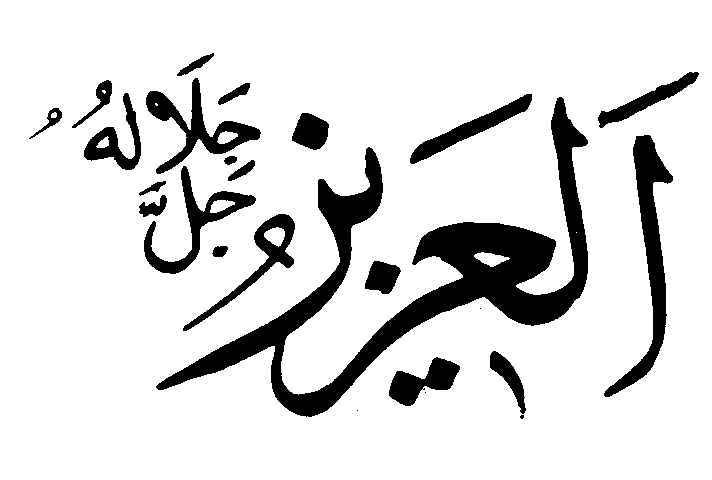 اَلْعَزِيزُ
جَلَّ جَلَالُهُ